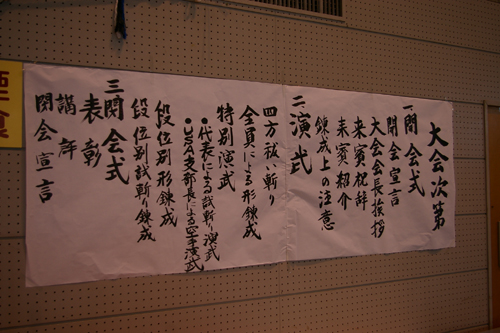 大会次第
一、開会式
開会宣言
大会会長挨拶
来賓祝辞
来賓紹介
錬成上の注意
二、演武
四方祓い斬り
全員による形錬成
特別演武
・代表による試斬り演武
・USA支部長による空手演武
段位別形錬成
段位別試斬り錬成
三、閉会式
表彰
講評
閉会宣言